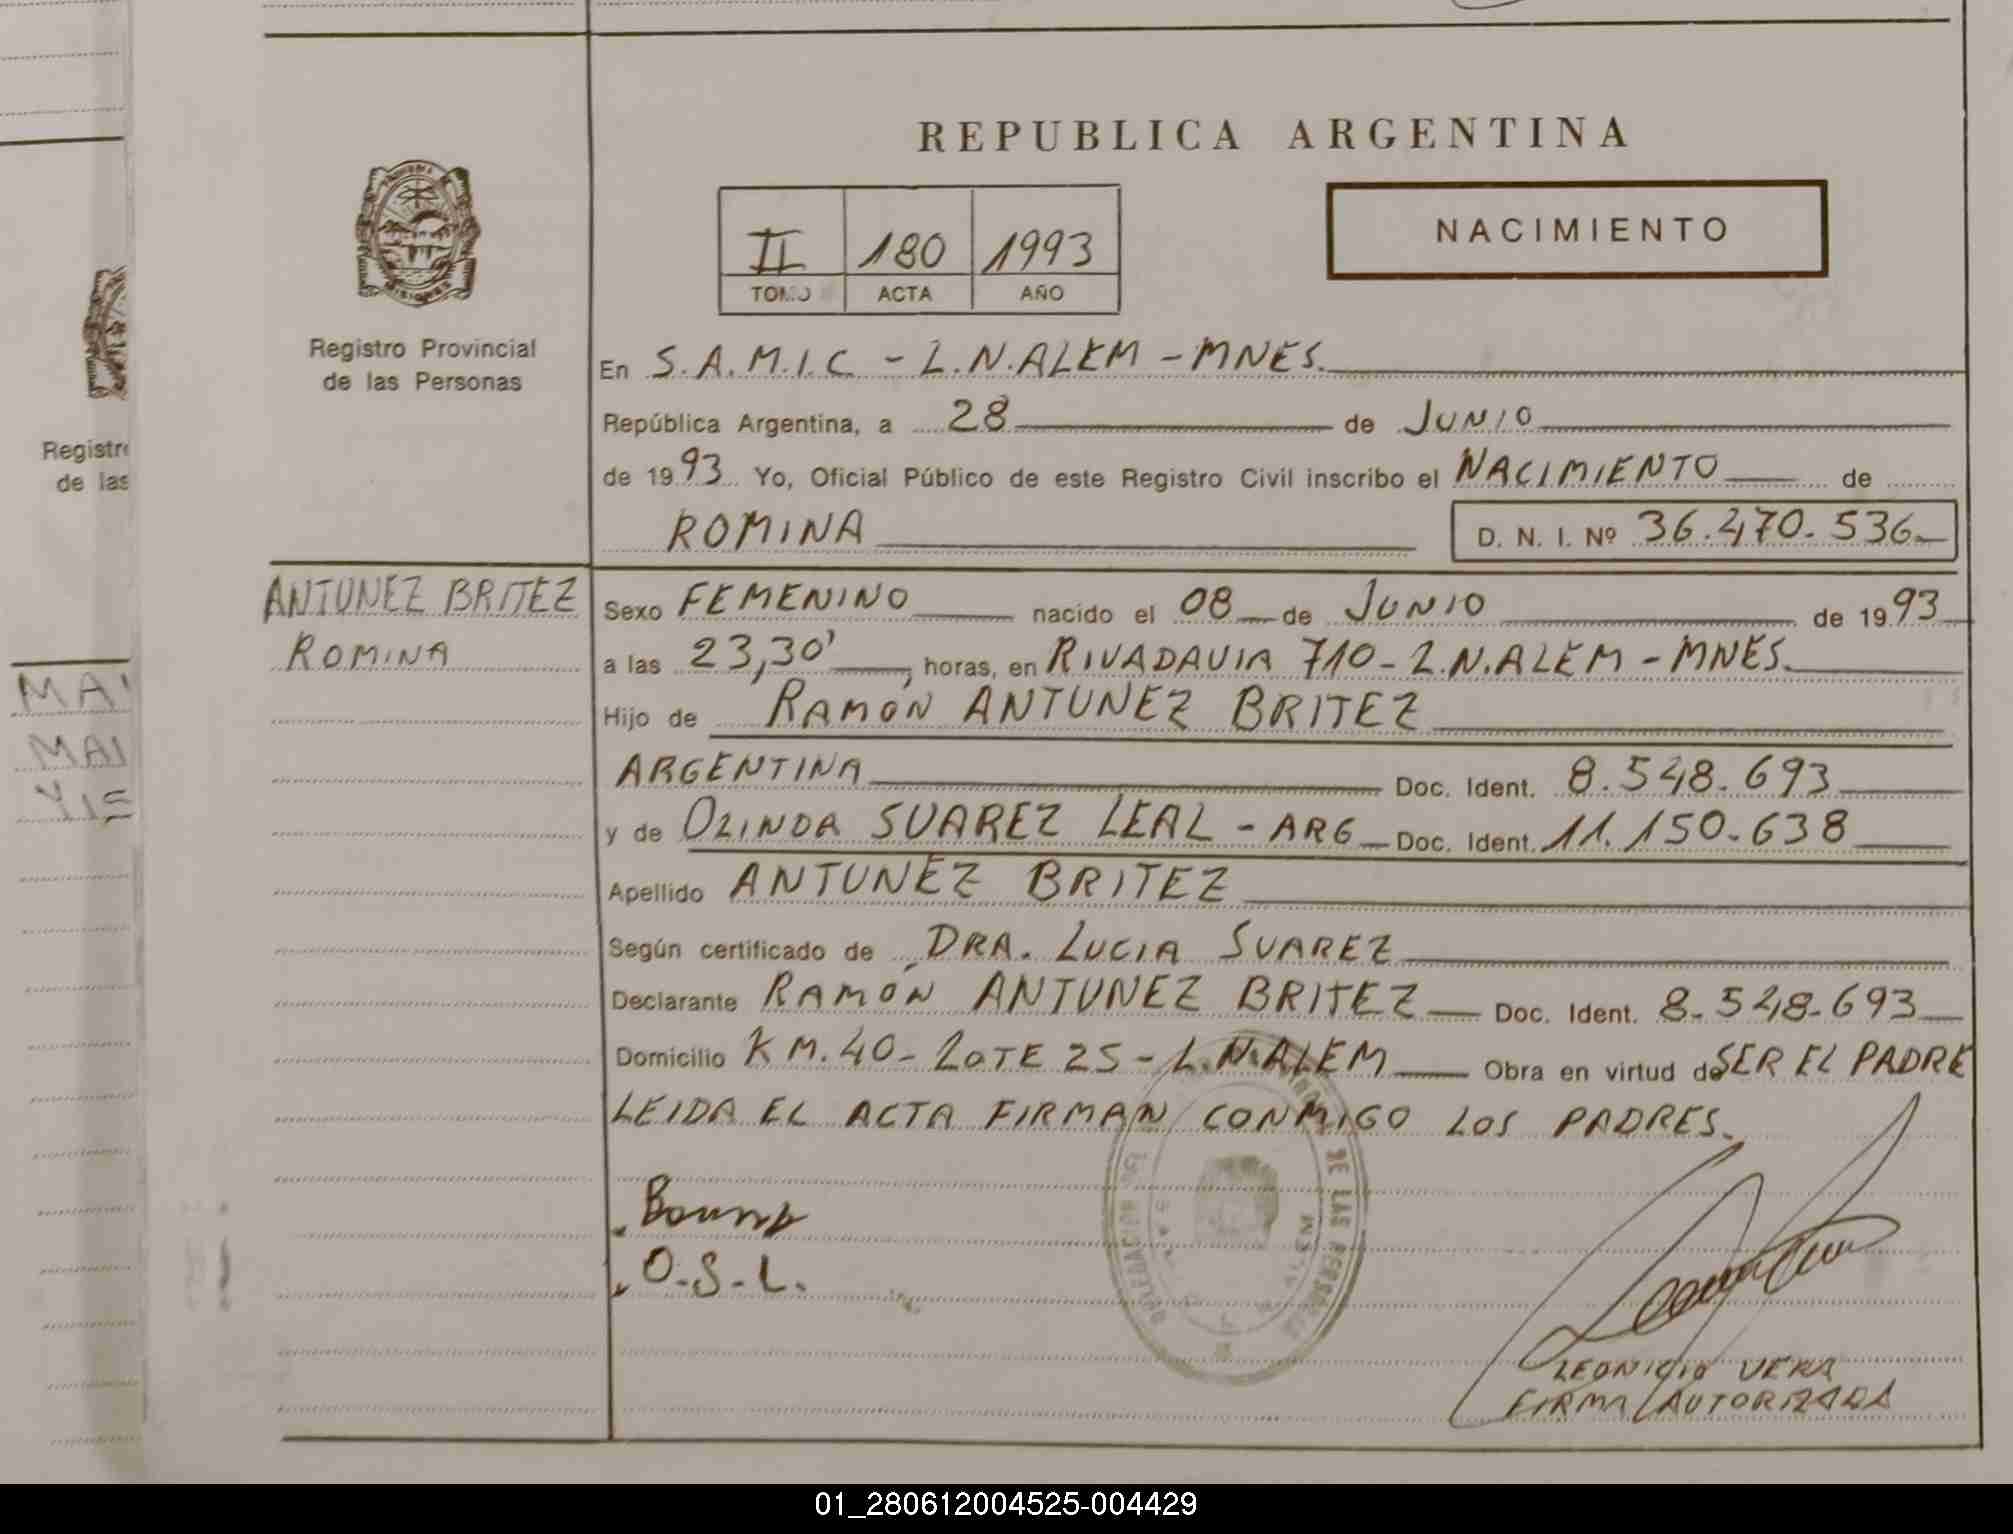 REPUBLICA ARGENTINA
II 180 1993
TOMO ACTA AÑO
NACIMIENTO
Registro Provincial
de las Personas
Registr
de las
En S.A.M.I.C - L.N.ALEM - MNES.
República Argentina, a 28 de JUNIO
de 1993 Yo, Oficial Público de este Registro Civil inscribo el NACIMIENTO de
ROMINA D. N. I. Nº 36.470.536
ANTUNEZ BRITEZ
ROMINA
Sexo FEMENINO nacido el 08 de JUNIO de 1993
a las 23,30' horas, en RIVADAVIA 710 - L.N.ALEM - MNES.
Hijo de RAMÓN ANTUNEZ BRITEZ
ARGENTINA Doc. Ident. 8.548.693
y de OLINDA SUAREZ LEAL - ARG Doc. Ident. 11.150.638
Apellido ANTUNEZ BRITEZ
Según certificado de DRA. LUCIA SUAREZ
Declarante RAMÓN ANTUNEZ BRITEZ Doc. Ident. 8.548.693
Domicilio KM.40 - LOTE 25 - L.N.ALEM Obra en virtud de SER EL PADRE
LEIDA EL ACTA FIRMAN CONMIGO LOS PADRES.
O.S.L.
DELEGACION DE LAS PERSONAS
LEONICIO VERA
FIRMA AUTORIZADA
MA
MAI
01_280612004525-004429